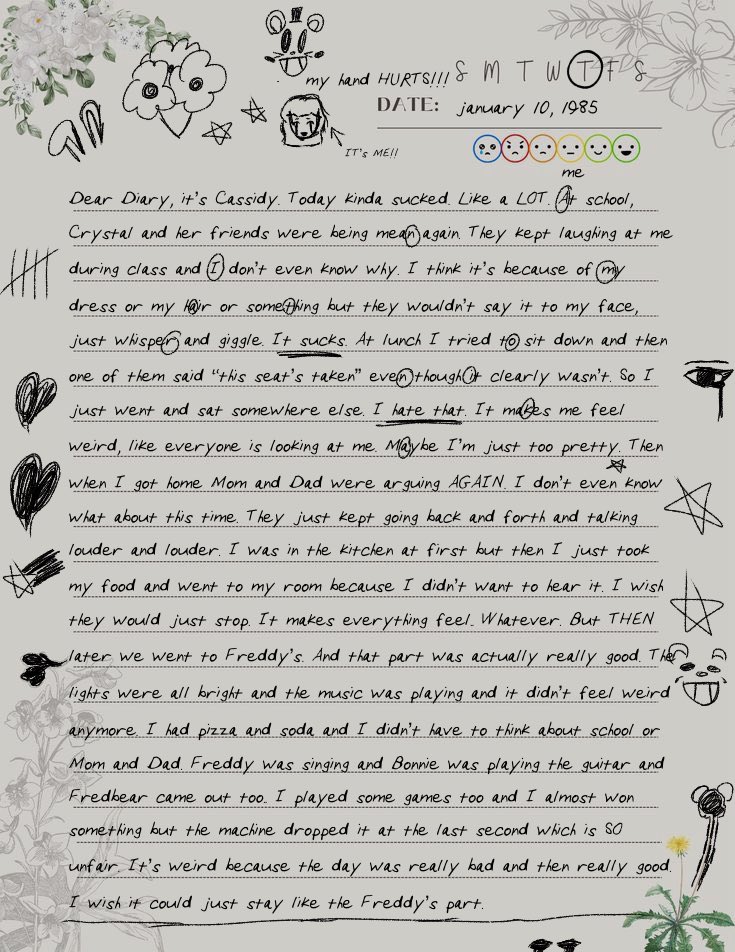 my hand HURTS!!! S M T W T F S
DATE: january 10, 1985
IT's ME!!
me
Dear Diary, it's Cassidy. Today kinda sucked. Like a LOT. At school,
Crystal and her friends were being mean again. They kept laughing at me
during class and I don't even know why. I think it's because of my
dress or my hair or something but they wouldn't say it to my face,
just whisper and giggle. It sucks. At lunch I tried to sit down and then
one of them said "this seat's taken" even though it clearly wasn't. So I
just went and sat somewhere else. I hate that. It makes me feel
weird, like everyone is looking at me. Maybe I'm just too pretty. Then
when I got home Mom and Dad were arguing AGAIN. I don't even know
what about this time. They just kept going back and forth and talking
louder and louder. I was in the kitchen at first but then I just took
my food and went to my room because I didn't want to hear it. I wish
they would just stop. It makes everything feel. Whatever. But THEN
later we went to Freddy's. And that part was actually really good. The
lights were all bright and the music was playing and it didn't feel weird
anymore. I had pizza and soda and I didn't have to think about school or
Mom and Dad. Freddy was singing and Bonnie was playing the guitar and
Fredbear came out too. I played some games too and I almost won
something but the machine dropped it at the last second which is SO
unfair. It's weird because the day was really bad and then really good.
I wish it could just stay like the Freddy's part.